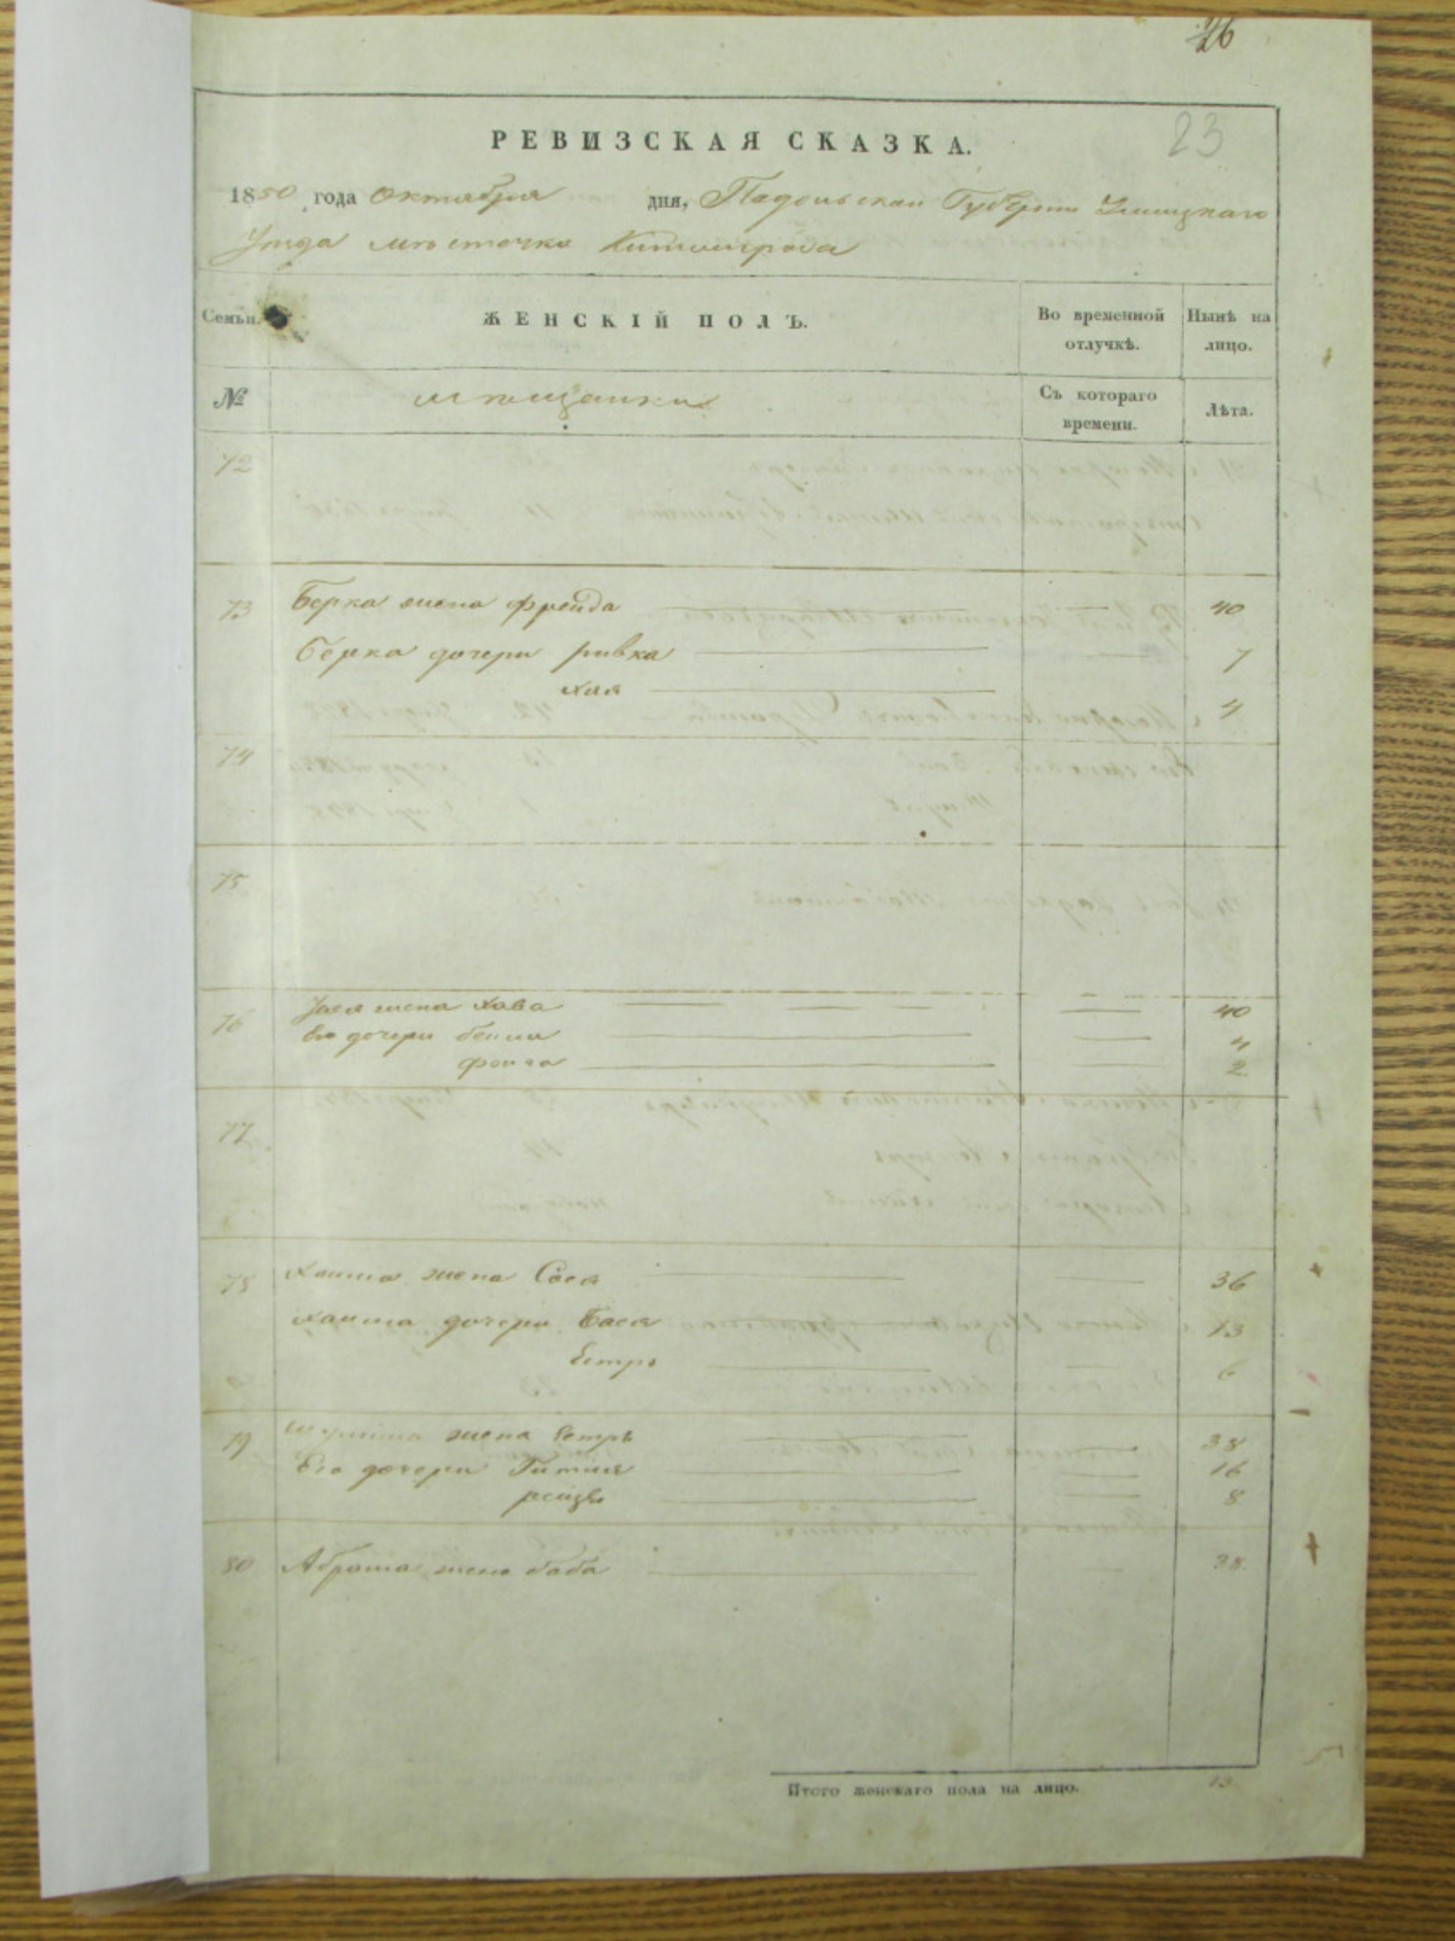 26
23
РЕВИЗСКАЯ СКАЗКА.
1850 года Октября дня, Падольскай Губерни Ушицкаго
Уезда местечка
Семьи. ЖЕНСКІЙ ПОЛЪ. Во временной отлучкѣ. Нынѣ на лицо.
№ мещанки Съ котораго времени. Лѣта.
72
73 Берка жена фрейда 40
Берка дочери ривка 7
хая 4
74
75
76 жена хава 40
Его дочери бейла 4
фейга 2
77
78 хаима жена Сося 36
хаима дочери Бася 13
Естръ 6
79 жена Естръ 38
Его дочери Гитля 16
рейзя 8
80 Абрама жена баба 38
Итого женскаго пола на лицо. 13